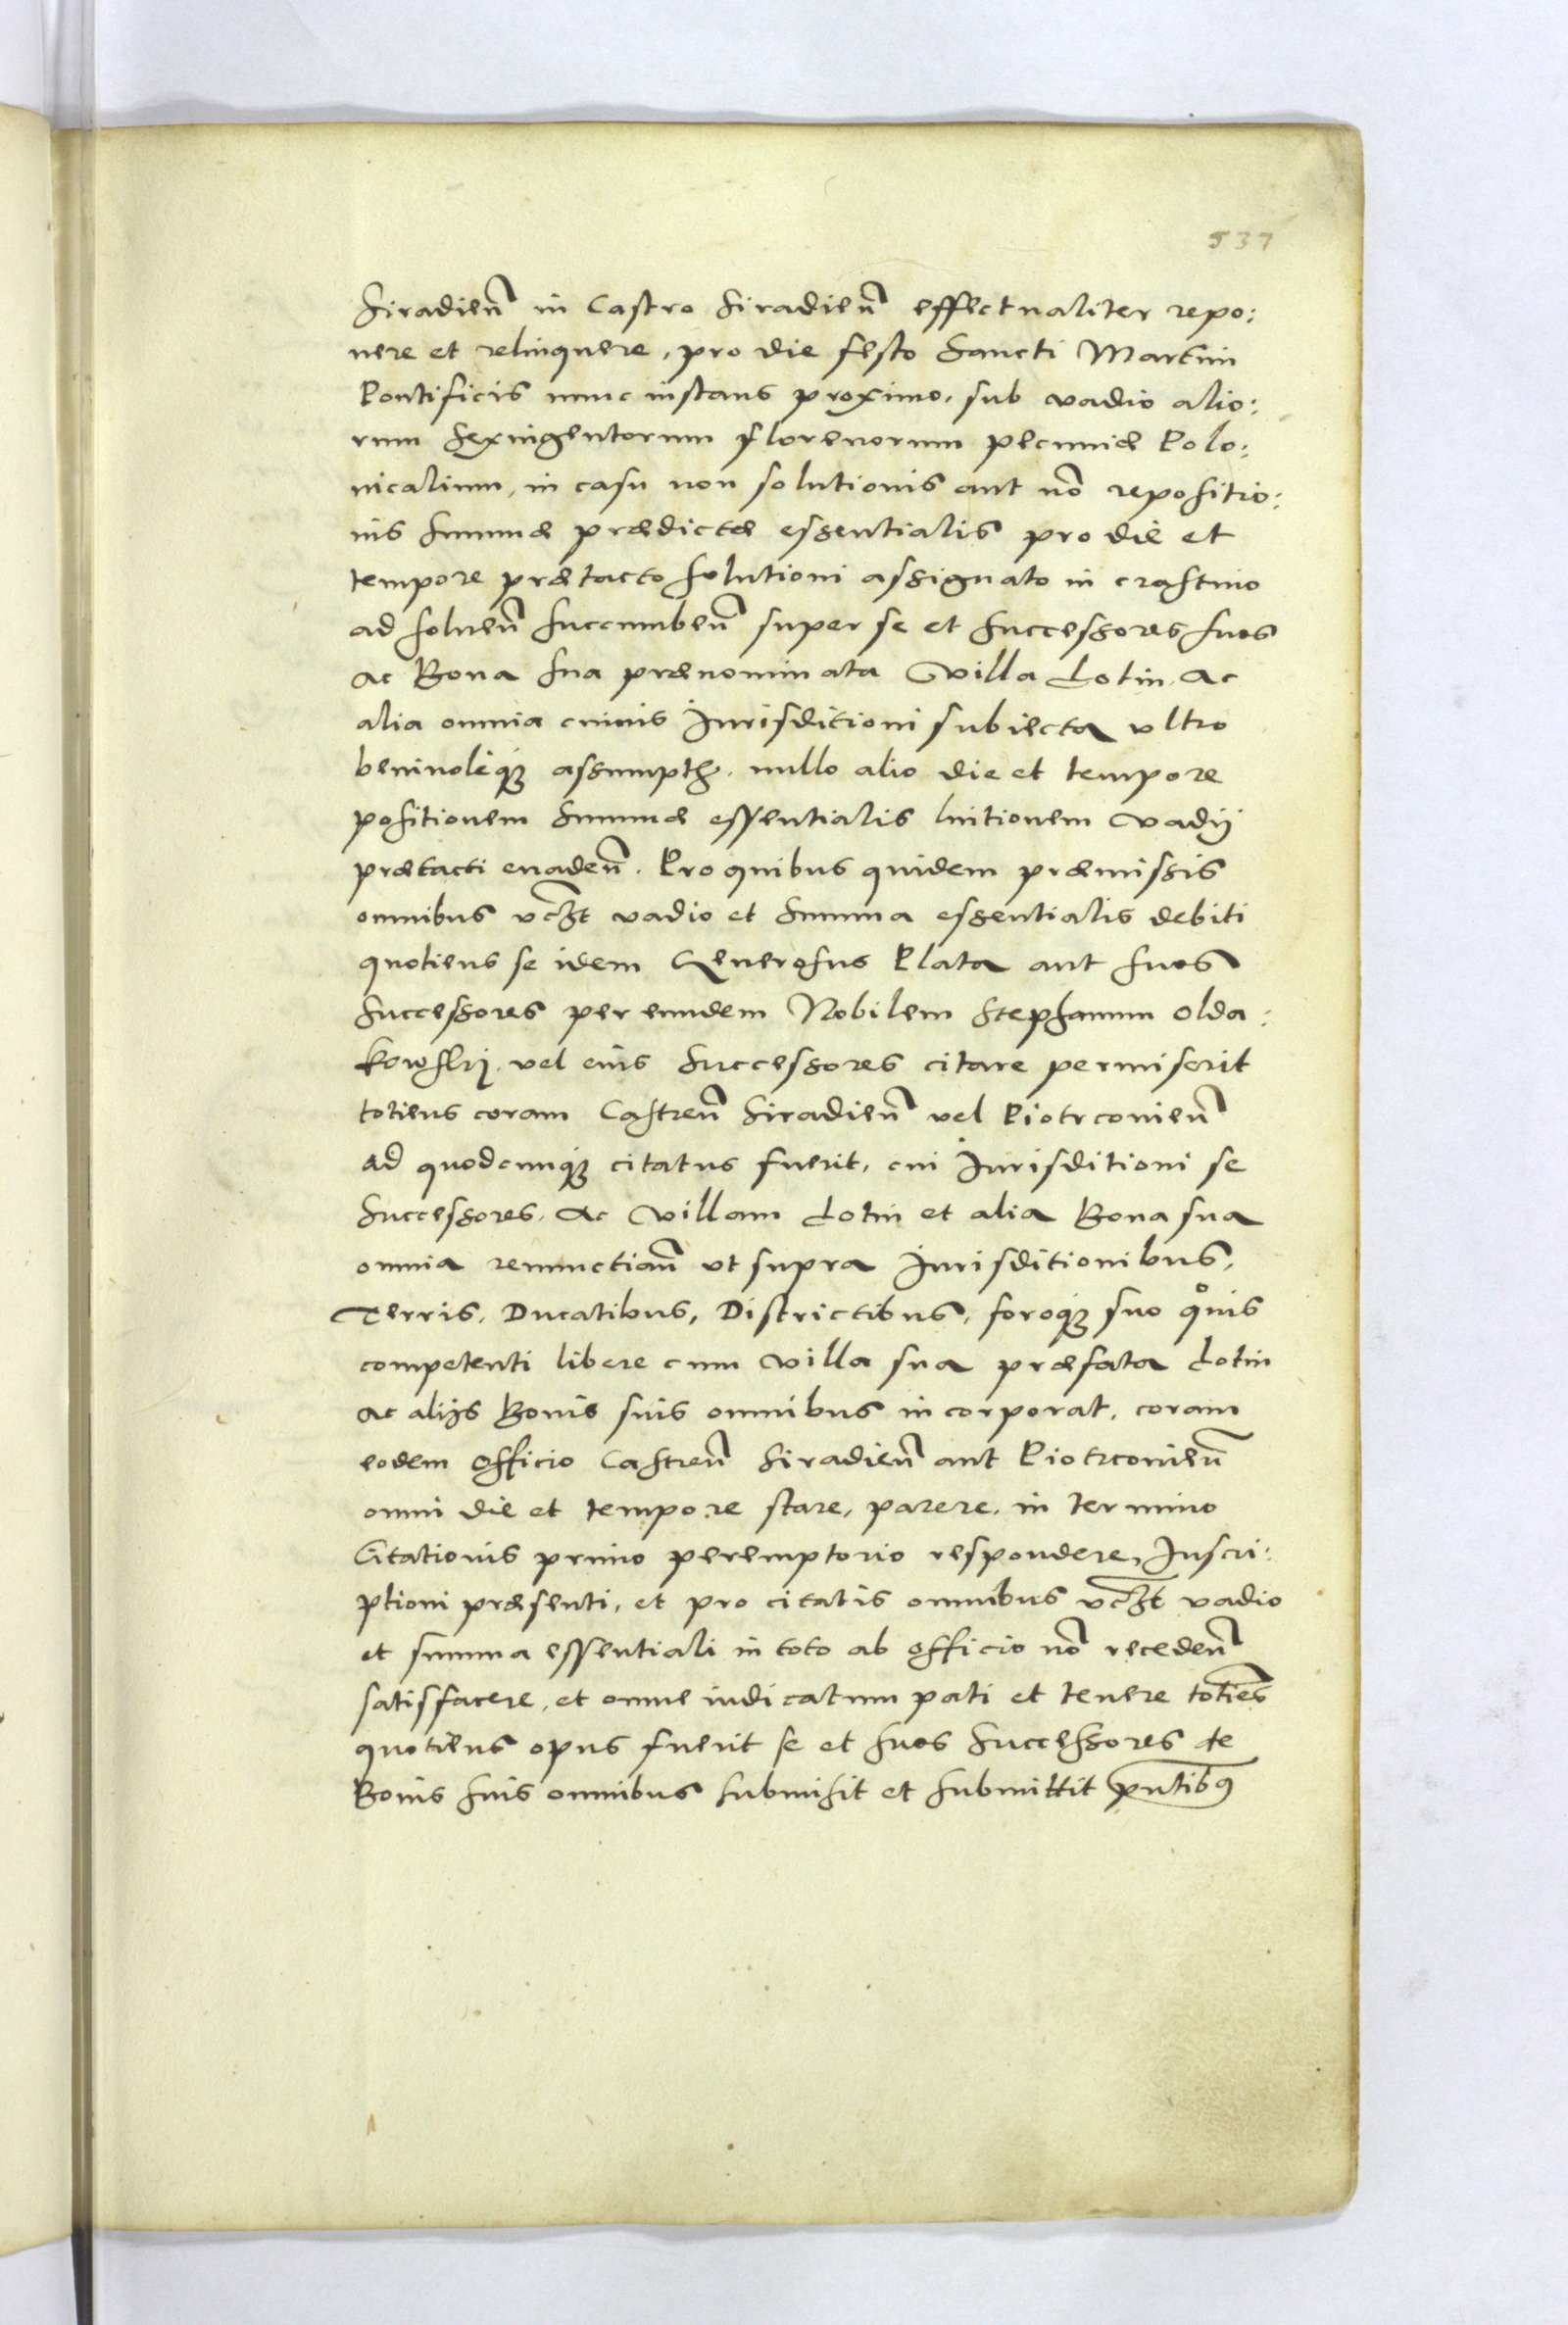 537
Siradien̄ in Castro Siradien̄ effectualiter repo:
nere et relinquere, pro die festo Sancti Martini
Pontificis nunc instans proximo, sub vadio alio:
rum Sexingentorum florenorum pecuniæ Polo:
nicalium, in casu non solutionis aut nō repositio:
nis Summæ prædictæ essentialis pro die et
tempore prætacto solutioni assignato in crastino
ad soluen̄ succumben̄ super se et Successores suos
ac Bona sua prænominata Villa Lotin, Ac
alia omnia cuiuis Jurisditioni subiecta ultro
beniuoleqȝ assumptꝭ. nullo alio die et tempore
positionem Summæ essentialis luitionem Vadij
prætacti euaden̄. Pro quibus quidem præmissis
omnibus vcꝫt vadio et Summa essentialis debiti
quotiens se idem Generosus Plata aut suos
Successores per eundem Nobilem Stephanum Olda:
kowskj, vel eius Successores citare permiserit
totiens coram Castren̄ Siradien̄ vel Piotrconien̄
ad quodcunqȝ citatus fuerit, cui Jurisditioni se
Successores, Ac Villam Lotin et alia Bona sua
omnia renunctian̄ ut supra Jurisditionibus,
Terris, Ducatibus, Districtibus, foroqȝ suo qͦuis
competenti libere cum Villa sua præfata Lotin
ac alijs Bonis suis omnibus incorporat, coram
eodem officio Castren̄ Siradien̄ aut Piotrconien̄
omni die et tempore stare, parere, in termino
Citationis primo peremptorio respondere, Inscri:
ptioni præsenti, et pro citatis omnibus vcꝫt vadio
et summa essentiali in toto ab officio nō receden̄
satisfacere, et omne iudicatum pati et tenere totiēs
quotiens opus fuerit se et suos Successores de
Bonis suis omnibus submisit et submittit pn̄tibꝰ